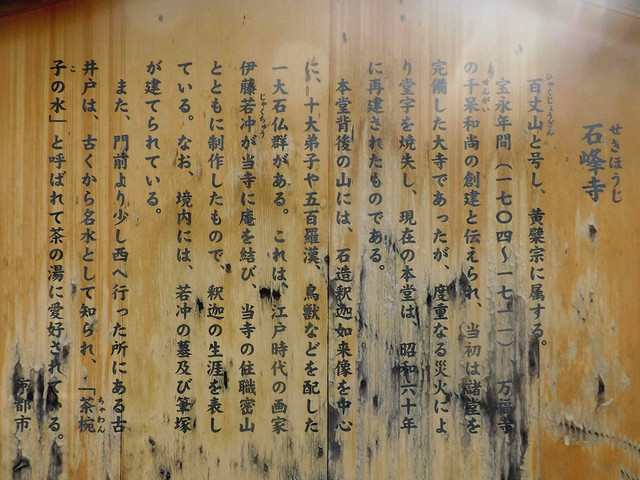 せきほうじ
石峰寺
ひゃくじょうざん
百丈山と号し、黄檗宗に属する。
宝永年間（一七〇四～一七一一）、万福寺
せんがい
の千呆和尚の創建と伝えられ、当初は諸堂を
完備した大寺であったが、度重なる災火によ
り堂宇を焼失し、現在の本堂は、昭和六十年
に再建されたものである。
本堂背後の山には、石造釈迦如来像を中心
に、十大弟子や五百羅漢、鳥獣などを配した
一大石仏群がある。これは、江戸時代の画家
じゃくちゅう
伊藤若冲が当寺に庵を結び、当寺の住職密山
とともに制作したもので、釈迦の生涯を表し
ている。なお、境内には、若冲の墓及び筆塚
が建てられている。
また、門前より少し西へ行った所にある古
ちゃわん
井戸は、古くから名水として知られ、「茶椀
こ
子の水」と呼ばれて茶の湯に愛好されている。
京都市